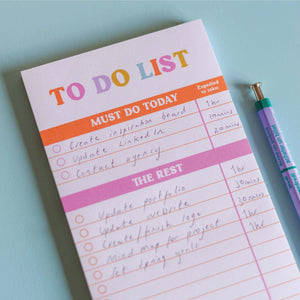 TO DO LIST
MUST DO TODAY
Expected to take:
Create inspiration board 1hr
Update LinkedIn 10mins
Contact agency 20mins
THE REST
Update portfolio 1hr
Update website 30mins
Create/finish logo 20mins
Mind map for project 1hr
Set spring goals 1hr